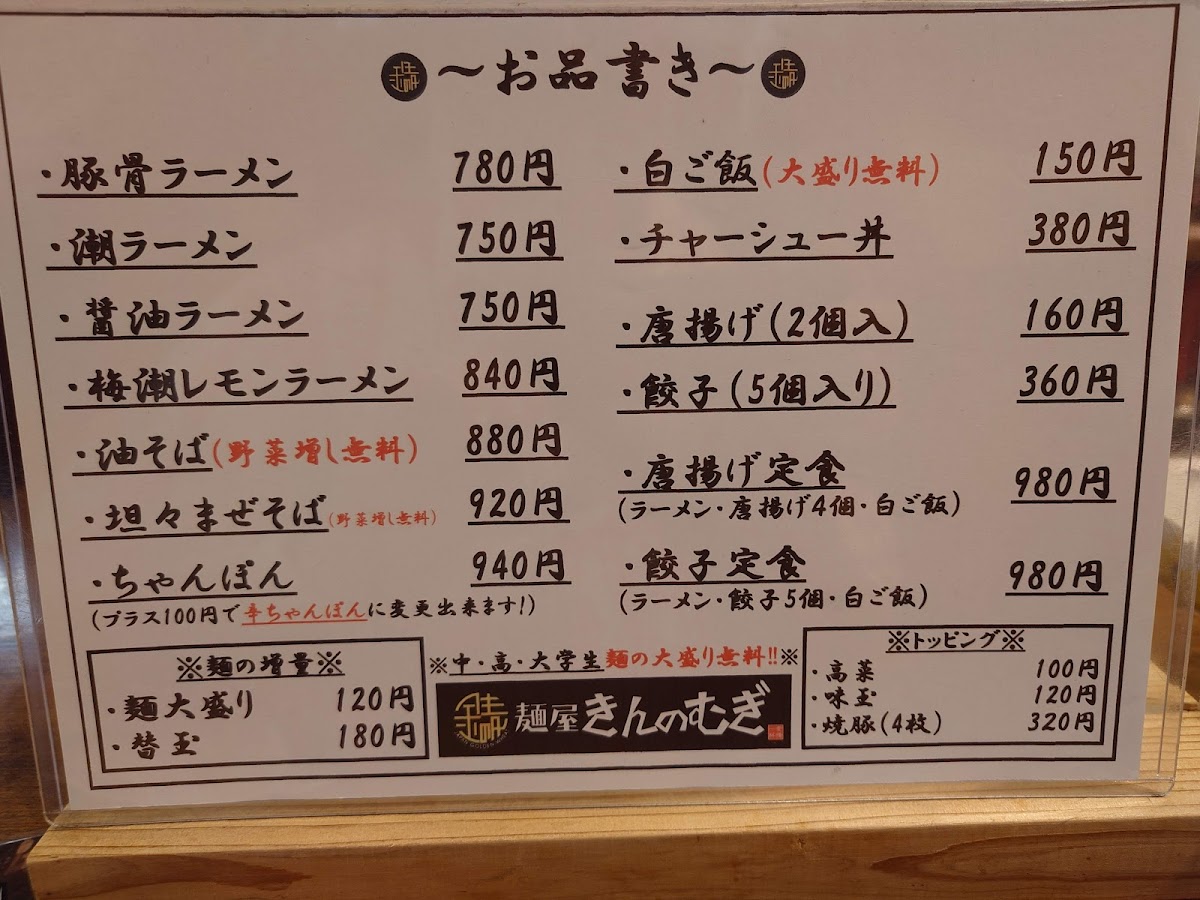 ～お品書き～
・豚骨ラーメン 780円
・潮ラーメン 750円
・醤油ラーメン 750円
・梅潮レモンラーメン 840円
・油そば(野菜増し無料) 880円
・坦々まぜそば(野菜増し無料) 920円
・ちゃんぽん 940円
(プラス100円で辛ちゃんぽんに変更出来ます!)
・白ご飯(大盛り無料) 150円
・チャーシュー丼 380円
・唐揚げ(2個入) 160円
・餃子(5個入り) 360円
・唐揚げ定食 980円
(ラーメン・唐揚げ4個・白ご飯)
・餃子定食 980円
(ラーメン・餃子5個・白ご飯)
※麺の増量※
・麺大盛り 120円
・替玉 180円
※中・高・大学生麺の大盛り無料!!※
麺屋きんのむぎ
※トッピング※
・高菜 100円
・味玉 120円
・焼豚(4枚) 320円